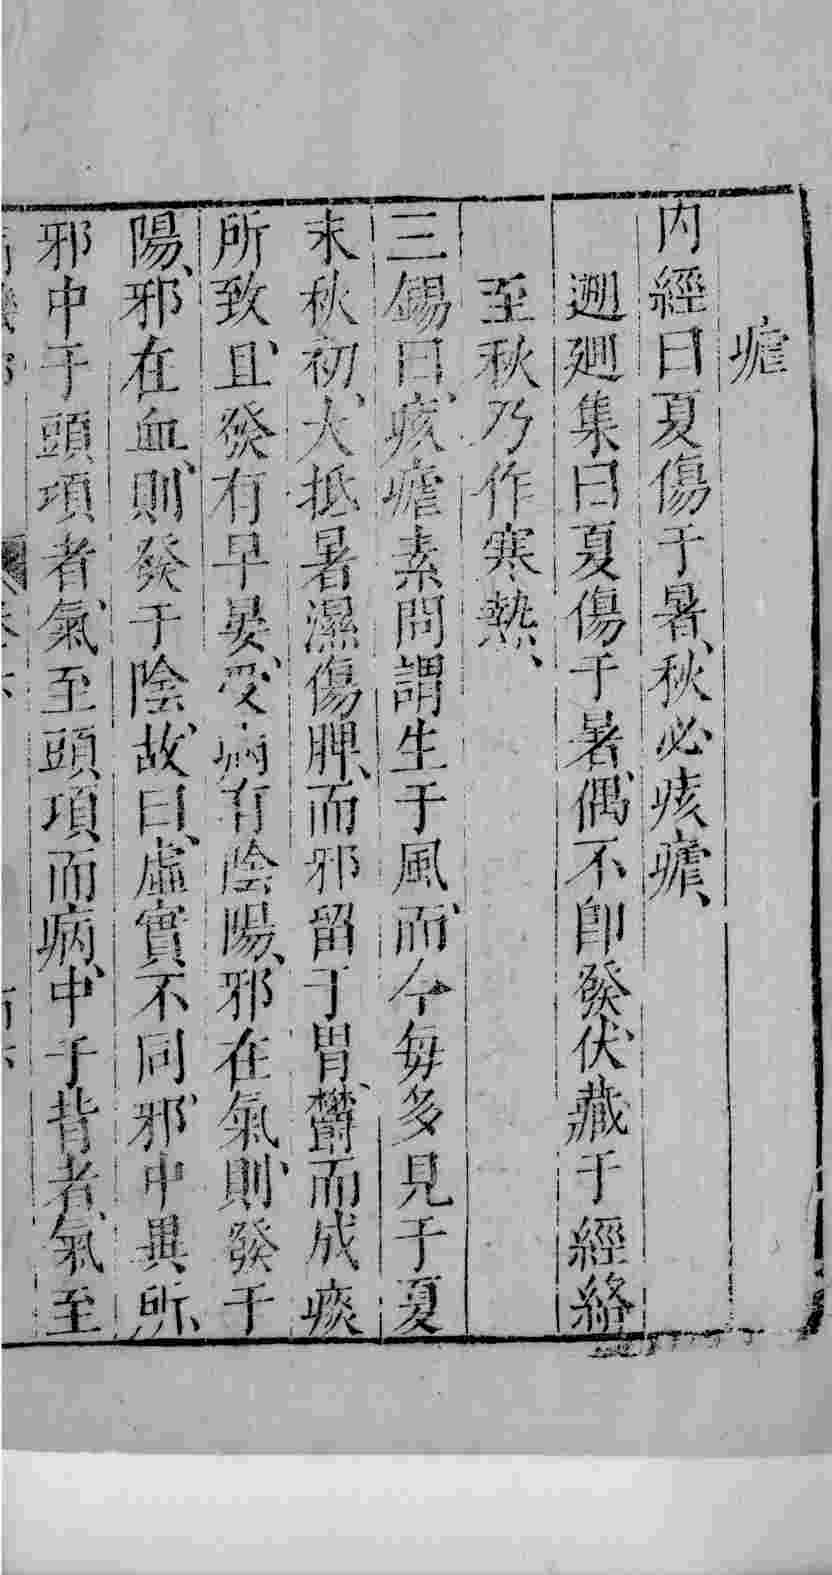 瘧
内經曰夏傷于暑、秋必痎瘧、
遡𢌞集曰夏傷于暑、偶不即發、伏藏于經絡
至秋乃作寒熱、
三錫曰、痎瘧素問謂生于風、而今每多見于夏
末秋初、大抵暑濕傷脾、而邪留于胃、欝而成痰
所致、且發有早晏、受病有陰陽、邪在氣、則發于
陽、邪在血、則發于陰、故曰、虛實不同、邪中異所
邪中于頭項者、氣至頭項而病、中于背者、氣至